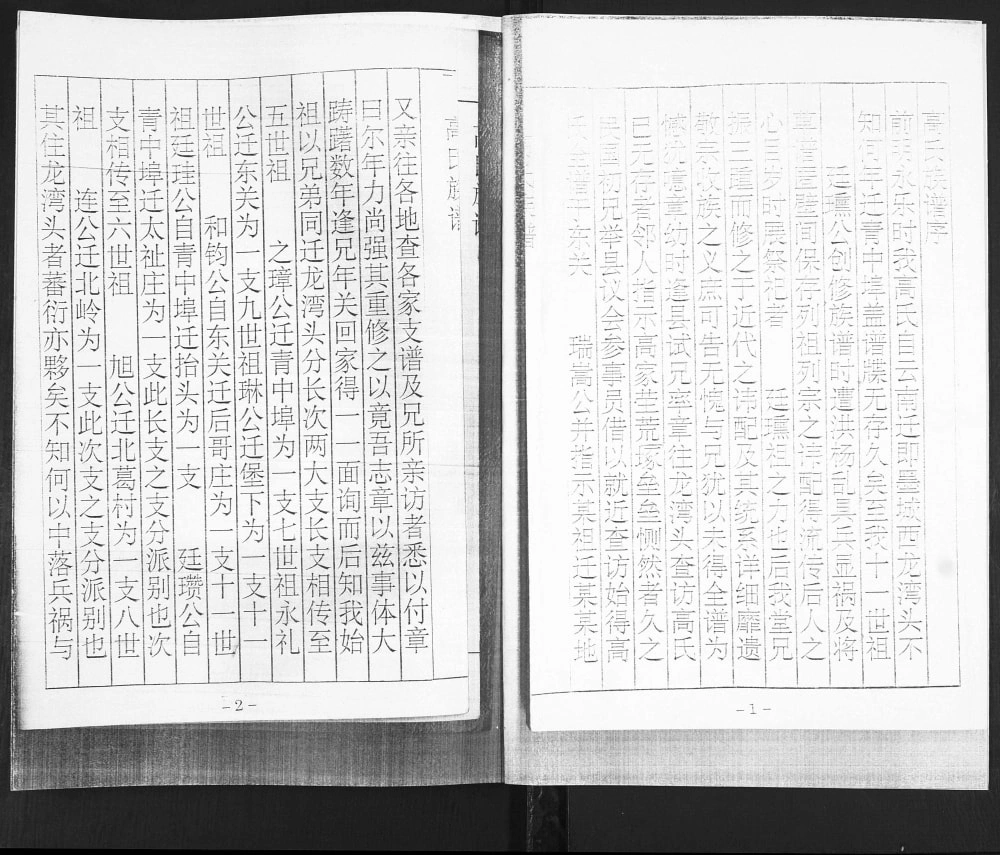 高氏族谱序
前明永乐时我高氏自云南迁即墨城西龙湾头不
知何年迁青中埠盖谱牒无存久矣至我十一世祖
廷瓐公创修族谱时遭洪杨乱兵显祸及将
草谱壁间保存列祖列宗之讳配得流传后人之
心目岁时展祭祀者 廷瓐祖之力也后我堂兄
振三踵而修之于近代之讳配及其统系详细靡遗
敬宗收族之义庶可告无愧与兄犹以未得全谱为
憾犹忆章幼时逢县试兄率章往龙湾头查访高氏
已无存者邻人指示高家茔荒塚垒垒恻然者久之
国初兄举县议会参事员借以就近查访始得高
氏全谱于东关 瑞嵩公并指示某祖迁某某地
-1-
高氏族谱
又亲往各地查各家支谱及兄所亲访者悉以付章
曰尔年力尚强其重修之以竟吾志章以兹事体大
踌躇数年逢兄年关回家得一一面询而后知我始
祖以兄弟同迁龙湾头分长次两大支长支相传至
五世祖 之璋公迁青中埠为一支七世祖永礼
公迁东关为一支九世祖琳公迁堡下为一支十一
世祖 和钧公自东关迁后哥庄为一支十一世
祖廷珪公自青中埠迁抬头为一支 廷瓒公自
青中埠迁太祉庄为一支此长支之支分派别也次
支相传至六世祖 旭公迁北葛村为一支八世
祖 连公迁北岭为一支此次支之支分派别也
其住龙湾头者蕃衍亦夥矣不知何以中落兵祸与
-2-